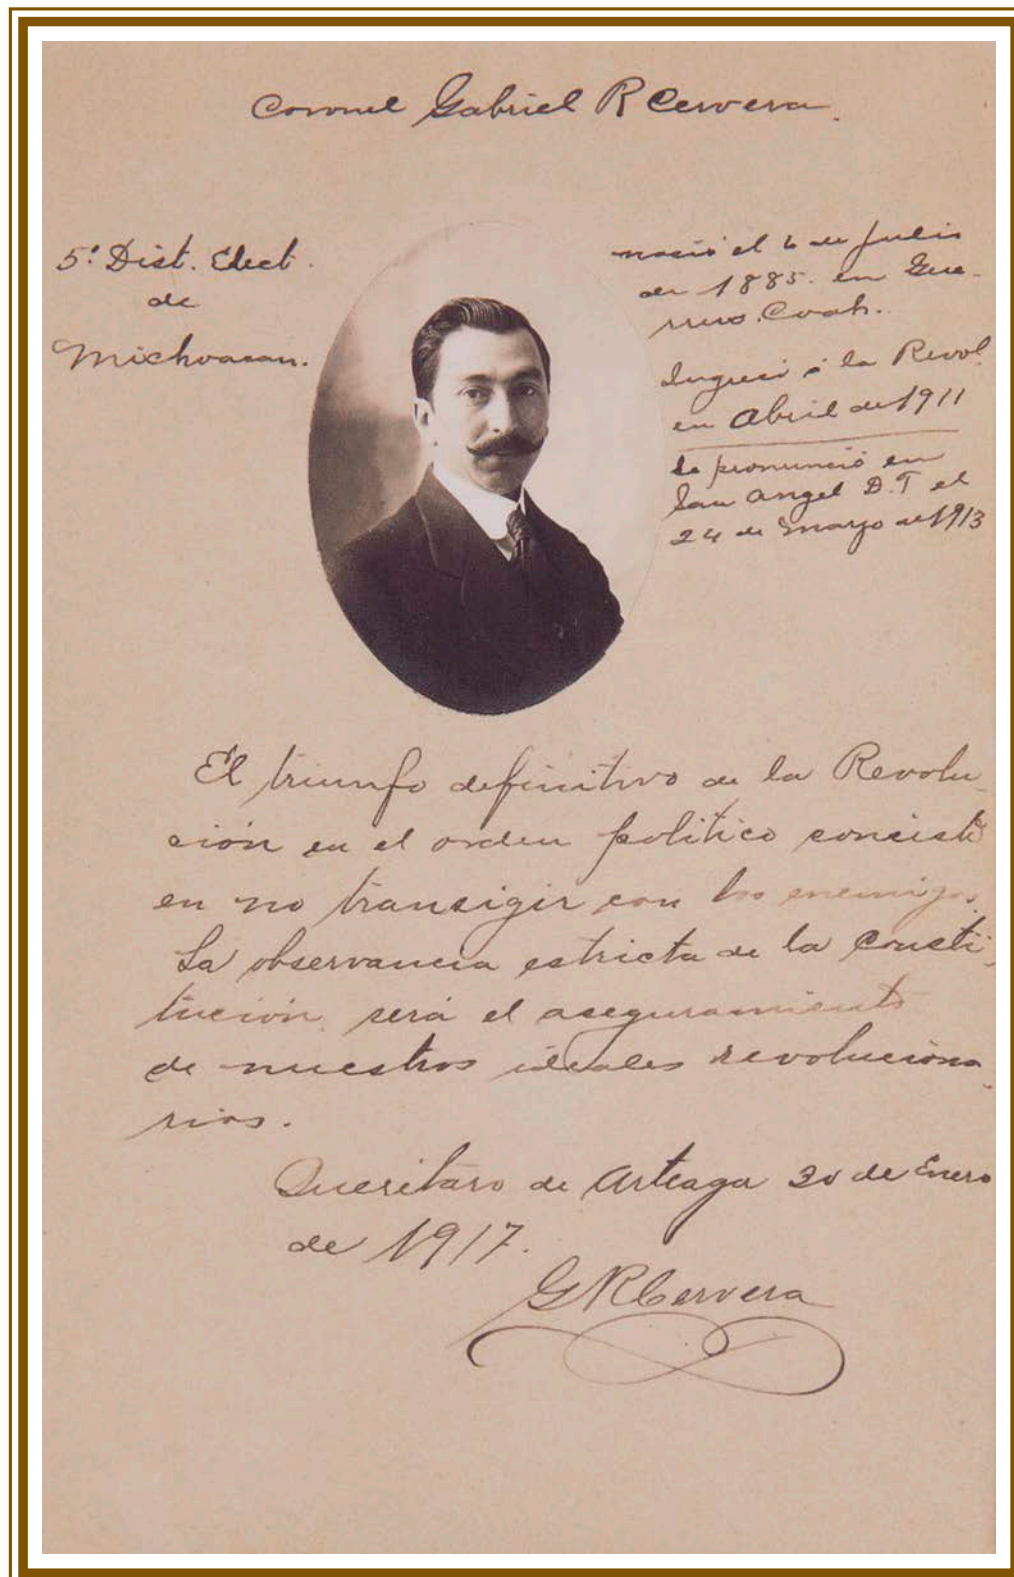 Coronel Gabriel R Cervera.
5º Dist. Elect.
de
Michoacan.
nació el 6 de Julio
de 1885. en Gue-
rrero. Coah.
Ingresó á la Revol.
en Abril de 1911
Se pronunció en
San Angel D.F el
24 de Marzo de 1913
El triunfo definitivo de la Revolu-
ción en el orden politico consiste
en no transigir con los enemigos.
La observancia estricta de la Consti-
tución, será el aseguramiento
de nuestros ideales revoluciona-
rios.
Querétaro de Arteaga 30 de Enero
de 1917.
G R Cervera